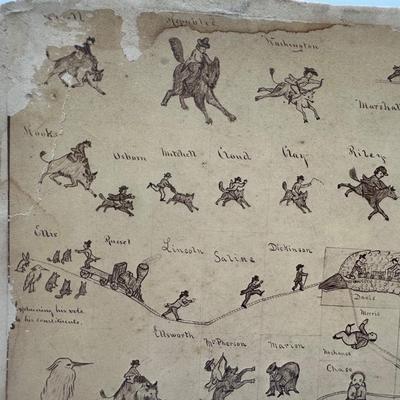 Republic
Washington
Marshall
Rooks
Osborn Mitchell Cloud Clay Riley
Ellis Russel Lincoln Saline Dickinson
Davis
Explaining his vote
to his constituents.
Morris
Ellsworth McPherson Marion
Chase